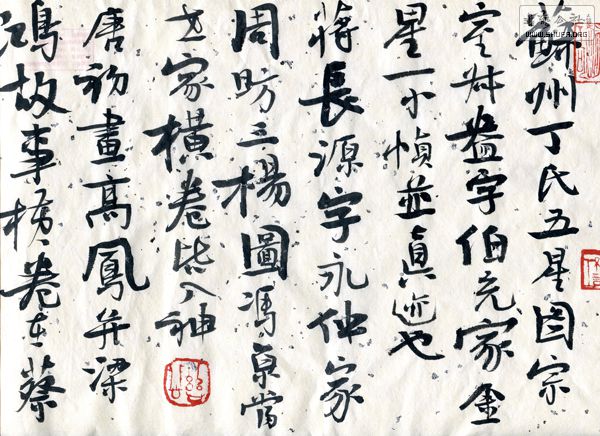 蘇州丁氏五星圖宗
室叔盎字伯充家金
星一小幀並真迹也
蔣長源字永仲家
周昉三楊圖馮京當
世家橫卷皆入神
唐初畫高鳳并梁
鴻故事橫卷在蔡
WWW.SHUFA.ORG